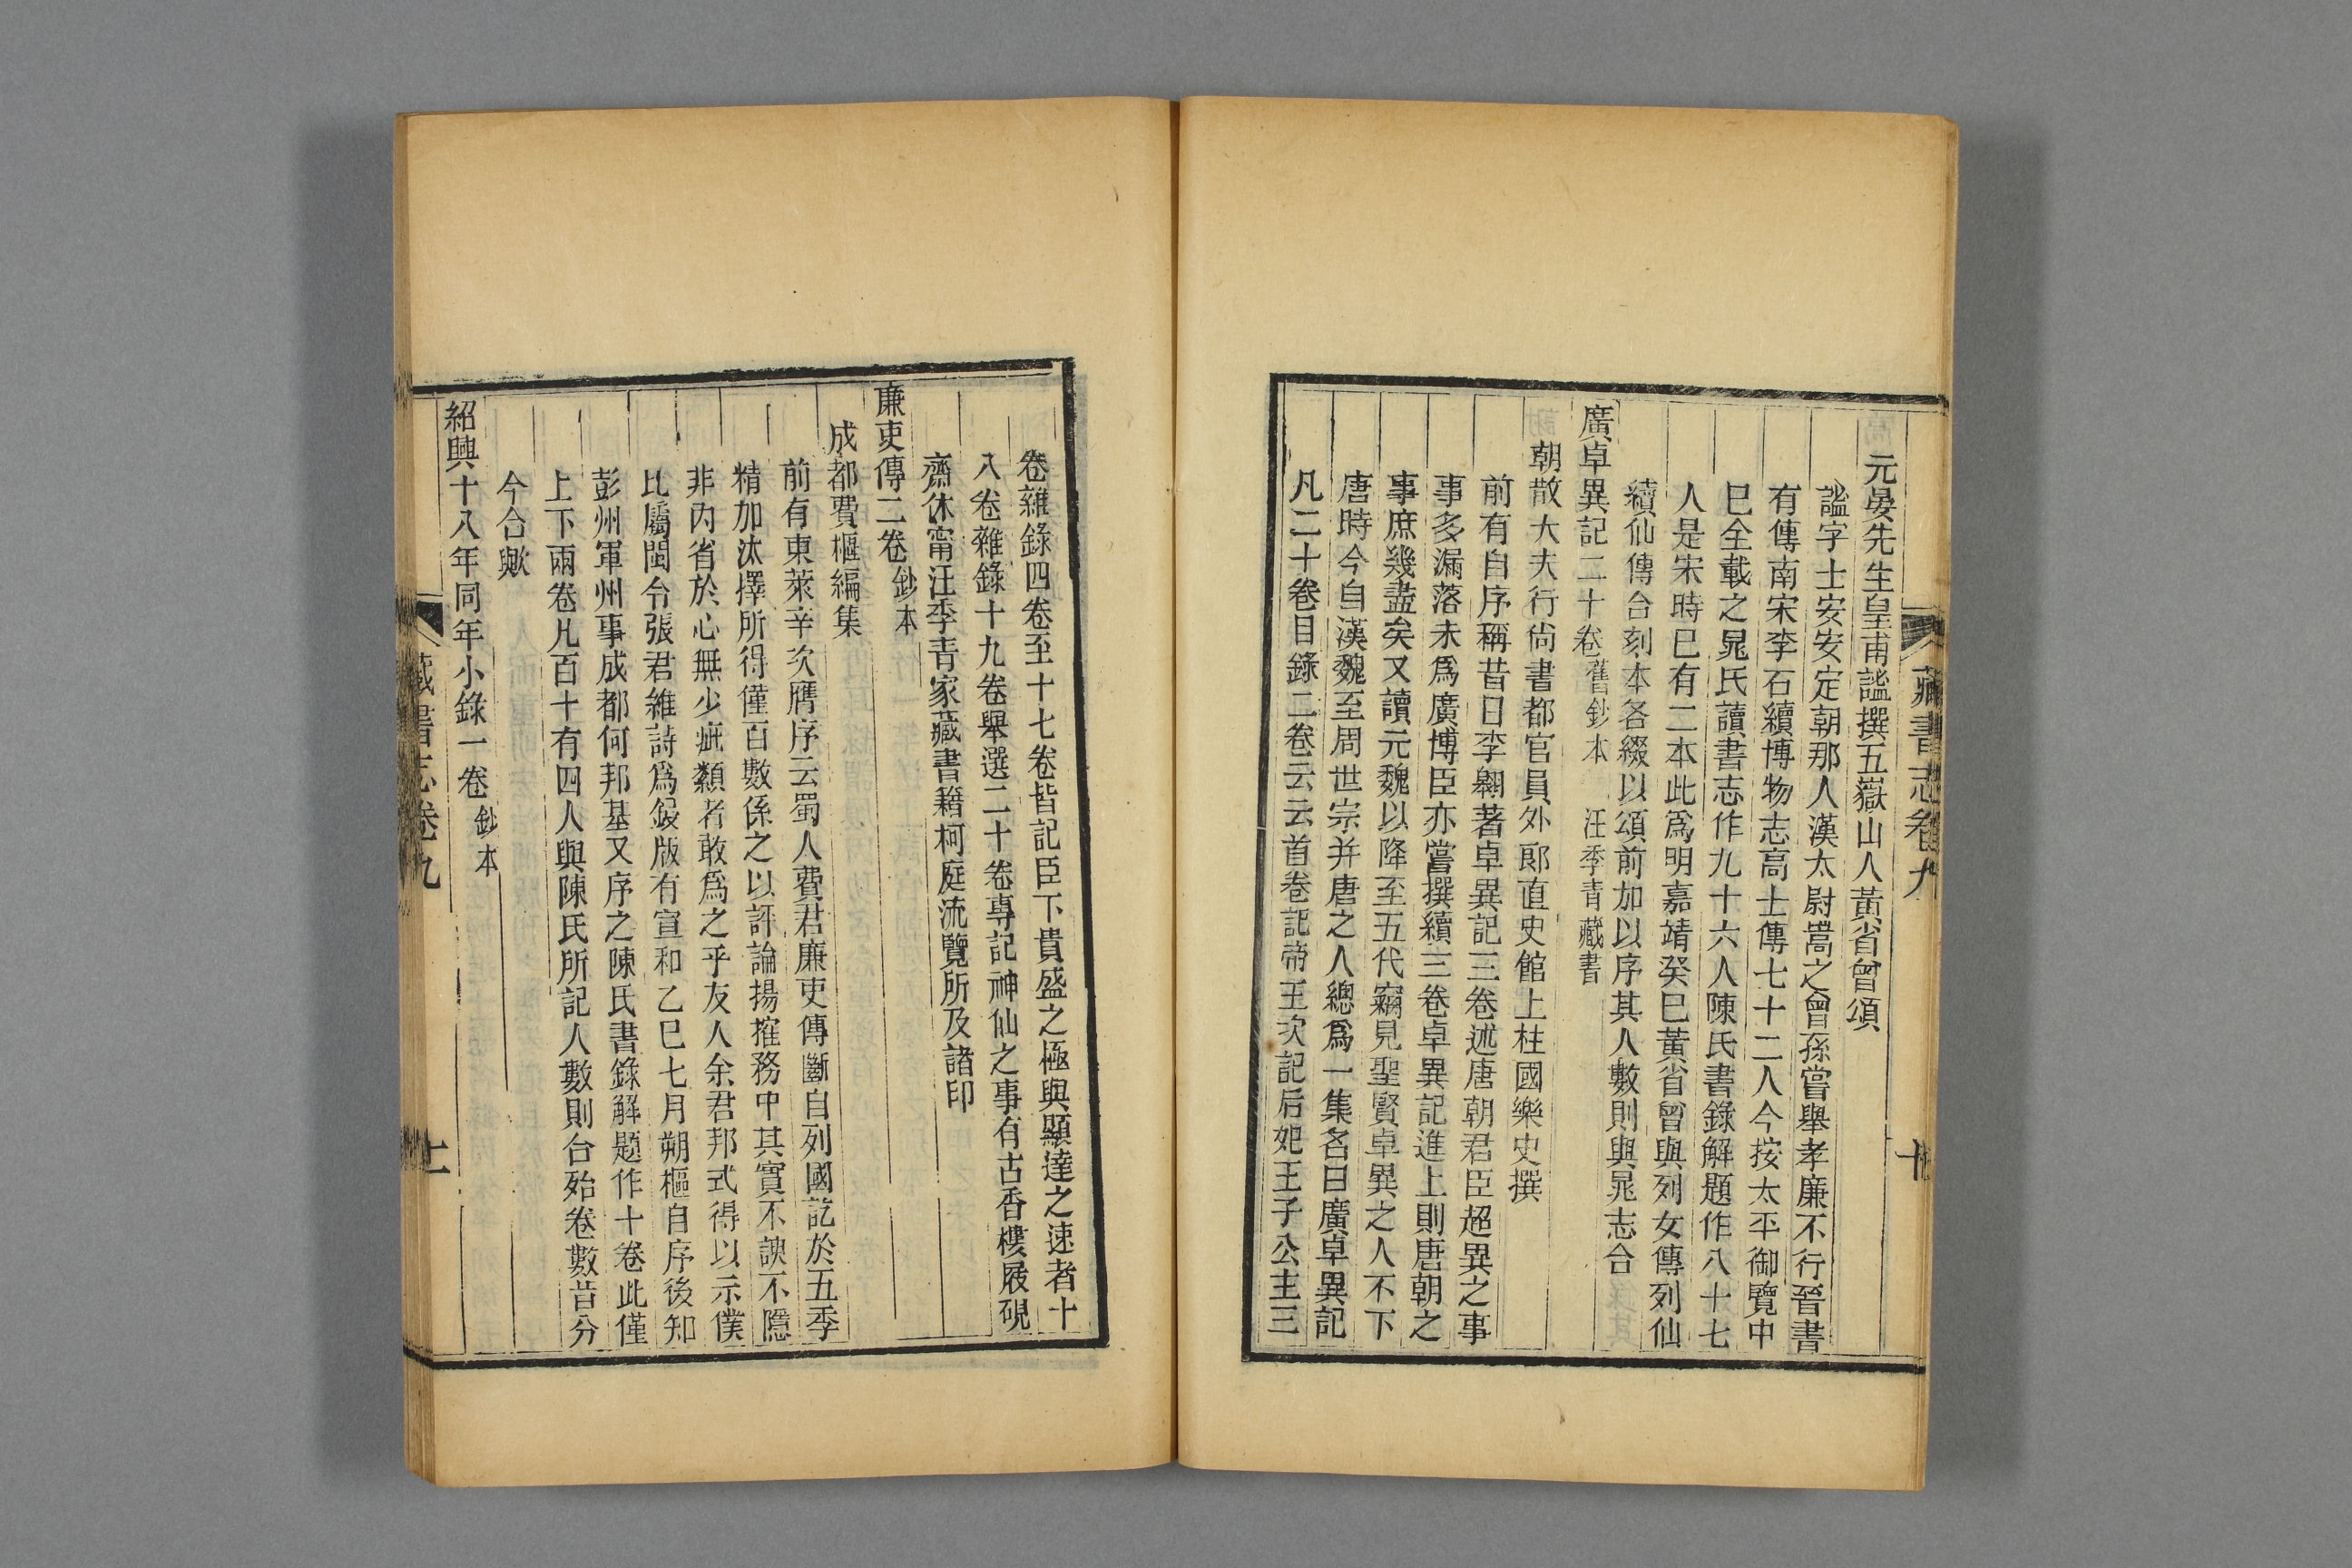 藏書志卷九
十
元晏先生皇甫謐撰五嶽山人黃省曾頌
謐字士安安定朝那人漢太尉嵩之曾孫嘗舉孝廉不行晉書
有傳南宋李石續博物志高士傳七十二人今按太平御覽中
已全載之晁氏讀書志作九十六人陳氏書錄解題作八十七
人是宋時已有二本此爲明嘉靖癸巳黃省曾與列女傳列仙
續仙傳合刻本各綴以頌前加以序其人數則與晁志合
廣卓異記二十卷舊鈔本 汪季青藏書
朝散大夫行尙書都官員外郞直史館上柱國樂史撰
前有自序稱昔日李翱著卓異記三卷述唐朝君臣超異之事
事多漏落未爲廣博臣亦嘗撰續三卷卓異記進上則唐朝之
事庶幾盡矣又讀元魏以降至五代竊見聖賢卓異之人不下
唐時今自漢魏至周世宗并唐之人總爲一集名曰廣卓異記
凡二十卷目錄二卷云云首卷記帝王次記后妃王子公主三
卷雜錄四卷至十七卷皆記臣下貴盛之極與顯達之速者十
八卷雜錄十九卷舉選二十卷專記神仙之事有古香樓屐硯
齋休甯汪季青家藏書籍柯庭流覽所及諸印
廉吏傳二卷鈔本
成都費樞編集
前有東萊辛次膺序云蜀人費君廉吏傳斷自列國訖於五季
精加汰擇所得僅百數係之以評論揚搉務中其實不諛不隱
非內省於心無少疵纇者敢爲之乎友人余君邦式得以示僕
比屬閩令張君維詩爲鋟版有宣和乙巳七月朔樞自序後知
彭州軍州事成都何邦基又序之陳氏書錄解題作十卷此僅
上下兩卷凡百十有四人與陳氏所記人數則合殆卷數昔分
今合歟
紹興十八年同年小錄一卷鈔本
藏書志卷九
十一